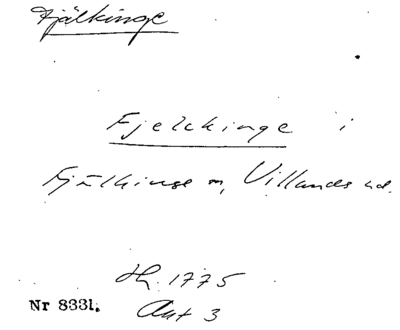 Fjälkinge
Fjelckinge i
Fjälkinge sn, Villands hd.
1775
Nr 8331. Akt 3